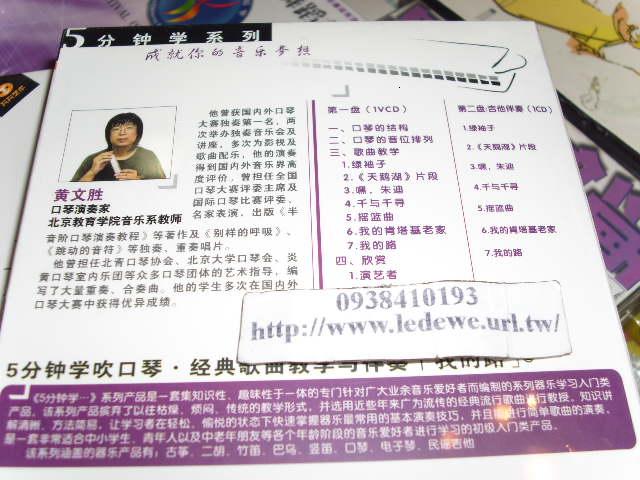 5分钟学系列
成就你的音乐梦想
黄文胜
口琴演奏家
北京教育学院音乐系教师
他曾获国内外口琴
大赛独奏第一名，两
次举办独奏音乐会及
讲座，多次为影视及
歌曲配乐，他的演奏
得到国内外音乐界高
度评价，曾担任全国
口琴大赛评委主席及
国际口琴比赛评委、
名家表演，出版《半
音阶口琴演奏教程》等著作及《别样的呼吸》、
《跳动的音符》等独奏、重奏唱片。
他曾担任北青口琴协会、北京大学口琴会、炎
黄口琴室内乐团等众多口琴团体的艺术指导，编
写了大量重奏、合奏曲。他的学生多次在国内外
口琴大赛中获得优异成绩。
第一盘（1VCD）
一、口琴的结构
二、口琴的音位排列
三、歌曲教学
1.绿袖子
2.《天鹅湖》片段
3.嘿，朱迪
4.千与千寻
5.摇篮曲
6.我的肯塔基老家
7.我的路
四、欣赏
1.演艺者
第二盘:吉他伴奏（1CD）
1.绿袖子
2.《天鹅湖》片段
3.嘿，朱迪
4.千与千寻
5.摇篮曲
6.我的肯塔基老家
7.我的路
0938410193
http://www.ledewe.url.tw/
5分钟学吹口琴·经典歌曲教学与伴奏「我的路」
《5分钟学…》系列产品是一套集知识性、趣味性于一体的专门针对广大业余音乐爱好者而编制的系列器乐学习入门类
产品。该系列产品摈弃了以往枯燥、烦闷、传统的教学形式，并选用近些年来广为流传的经典流行歌曲进行教授。知识讲
解清晰、方法简易，让学习者在轻松、愉悦的状态下快速掌握器乐最常用的基本演奏技巧，并且能进行简单歌曲的演奏，
是一套非常适合中小学生、青年人以及中老年朋友等各个年龄阶段的音乐爱好者进行学习的初级入门类产品。
该系列涵盖的器乐产品有：古筝、二胡、竹笛、巴乌、竖笛、口琴、电子琴、民谣吉他